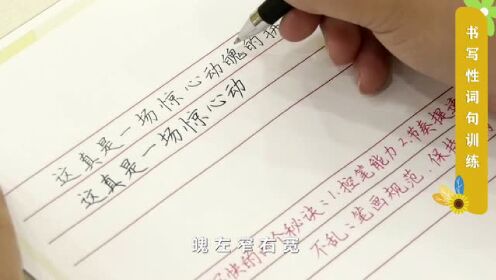 书写性词句训练
这真是一场惊心动魄的
这真是一场惊心动
快的 秘诀:1.控笔能力2.节奏
不乱:笔画规范、保持
魄左窄右宽